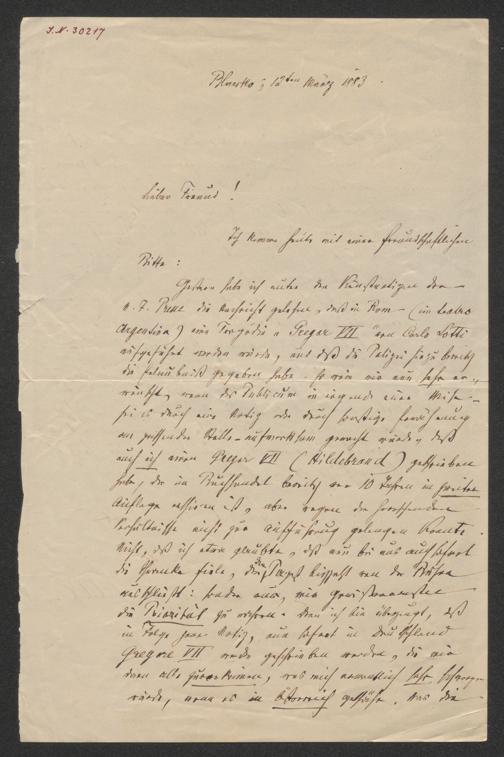 I.N. 30217
13ten März 1883.
Lieber Freund!
Ich komme heute mit einer freundschaftlichen
Bitte:
Gestern habe ich unter den Kunstnotizen der
n. f. Presse die Nachricht gelesen, daß in Rom – (im teatro
Argentina) eine Tragödie „Gregor VII" von Carlo Lotti
aufgeführt werden würde, und daß die Polizei hiezu bereits
die Erlaubniß gegeben habe. Es wäre mir nun sehr er-
wünscht, wenn das Publicum in irgend einer Weise –
sei es durch eine Notiz oder durch sonstige
an passender Stelle – aufmerksam gemacht würde, daß
auch ich einen Gregor VII (Hildebrand) geschrieben
habe, der im Buchhandel bereits vor 10 Jahren in zweiter
Auflage erschienen ist, aber wegen der herrschenden
Verhältnisse nicht zur Aufführung gelangen konnte.
Nicht, daß ich etwa glaubte, daß nun bei uns auch sofort
die Schranke fiele, die den Papst bisher von der Bühne
ausschließt: sondern nur, um gewissermaßen
die Priorität zu wahren. Denn ich bin überzeugt, daß
in Folge jener Notiz, nun sofort in Deutschland
Gregore VII werden geschrieben werden, die mir
dann alle zuvorkämen, was mich namentlich sehr
würde, wenn es in Österreich geschähe. Was die